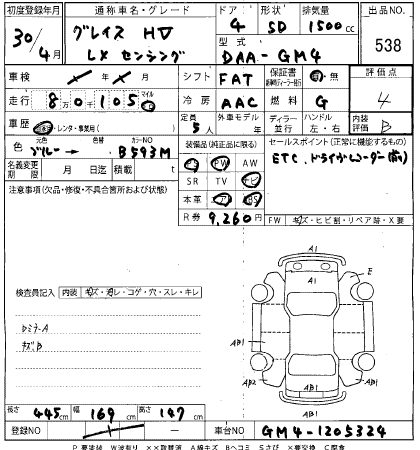 初度登録年月 通称車名・グレード ドア 形状 排気量 出品NO.
30/4月 グレイス HV LX センシング 4 SD 1500cc 538
型式 DAA-GM4
車検 / 年 / 月 シフト FAT 保証書 有・無 評価点 4
走行 8万0千105 マイル km 冷房 AAC 燃料 G
車歴 自家・レンタ・事業用( ) 定員 5人 外車モデル 年 ディーラー 並行 ハンドル 左・右 内装評価 B
色 元色 ブルー → 色替 カラーNO B593M
装備品(純正品に限る) セールスポイント(正常に機能するもの)
ETC.ドライブレコーダー(前)
名義変更期限 月 日迄 積載量 t
PS PW AW
SR TV ナビ
本革 エアB ABS
R券 9,260円
注意事項(欠品・修復・不具合箇所および状態)
FW キズ・ヒビ割・リペア跡・X要
A1
E
検査員記入 内装 キズ・汚レ・コゲ・穴・スレ・キレ
シミナ-A
キズB
AB1
AB1
AB2
AB1
A1
長さ 445cm 幅 169cm 高さ 147cm
登録NO / — 車台NO GM4-1205324
P要塗装 W波有り ××取替済 A線キズ Bヘコミ Sさび X要交換 C腐食